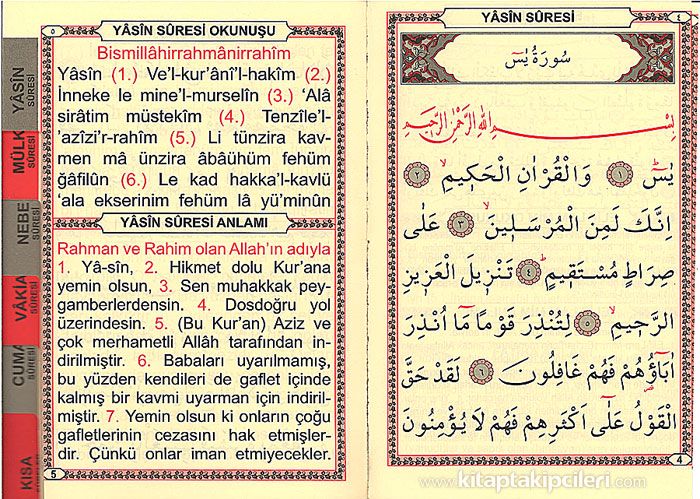 YÂSİN SÛRESİ OKUNUŞU
٥
Bismillâhirrahmânirrahîm
Yâsîn (1.) Ve’l-kur’ânî’l-hakîm (2.)
İnneke le mine’l-murselîn (3.) ‘Alâ
sirâtim müstekîm (4.) Tenzîle’l-
’azîzi’r-rahîm (5.) Li tünzira kav-
men mâ ünzira âbâühüm fehüm
ğafilûn (6.) Le kad hakka’l-kavlü
‘ala ekserinim fehüm lâ yü’minûn
YÂSİN SÛRESİ ANLAMI
Rahman ve Rahim olan Allah’ın adıyla
1. Yâ-sîn, 2. Hikmet dolu Kur’ana
yemin olsun, 3. Sen muhakkak pey-
gamberlerdensin. 4. Dosdoğru yol
üzerindesin. 5. (Bu Kur’an) Aziz ve
çok merhametli Allâh tarafından in-
dirilmiştir. 6. Babaları uyarılmamış,
bu yüzden kendileri de gaflet içinde
kalmış bir kavmi uyarman için indiril-
miştir. 7. Yemin olsun ki onların çoğu
gafletlerinin cezasını hak etmişler-
dir. Çünkü onlar iman etmiyecekler.
5
YÂSİN SÛRESİ
MÜLK SÛRESİ
NEBE SÛRESİ
VÂKIA SÛRESİ
CUMA SÛRESİ
KISA
YÂSİN SÛRESİ
٤
سُورَةُ يٰسٓ
بِسْــــمِ اللهِ الرَّحْمٰنِ الرَّحِيمِ
يٰسٓ ﴿١﴾ وَالْقُرْاٰنِ الْحَكِيمِۙ ﴿٢﴾
اِنَّكَ لَمِنَ الْمُرْسَلِينَۙ ﴿٣﴾ عَلٰى
صِرَاطٍ مُسْتَقِيمٍۜ ﴿٤﴾ تَنْزِيلَ الْعَزِيزِ
الرَّحِيمِۙ ﴿٥﴾ لِتُنْذِرَ قَوْمًا مَٓا اُنْذِرَ
اٰبَٓاؤُهُمْ فَهُمْ غَافِلُونَ ﴿٦﴾ لَقَدْ حَقَّ
الْقَوْلُ عَلٰٓى اَكْثَرِهِمْ فَهُمْ لَا يُؤْمِنُونَ
4
www.kitaptakipcileri.com